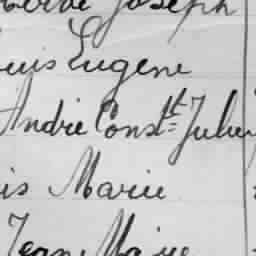 Joseph
uis Eugène
André Const Julien
is Marie
Jean Marie